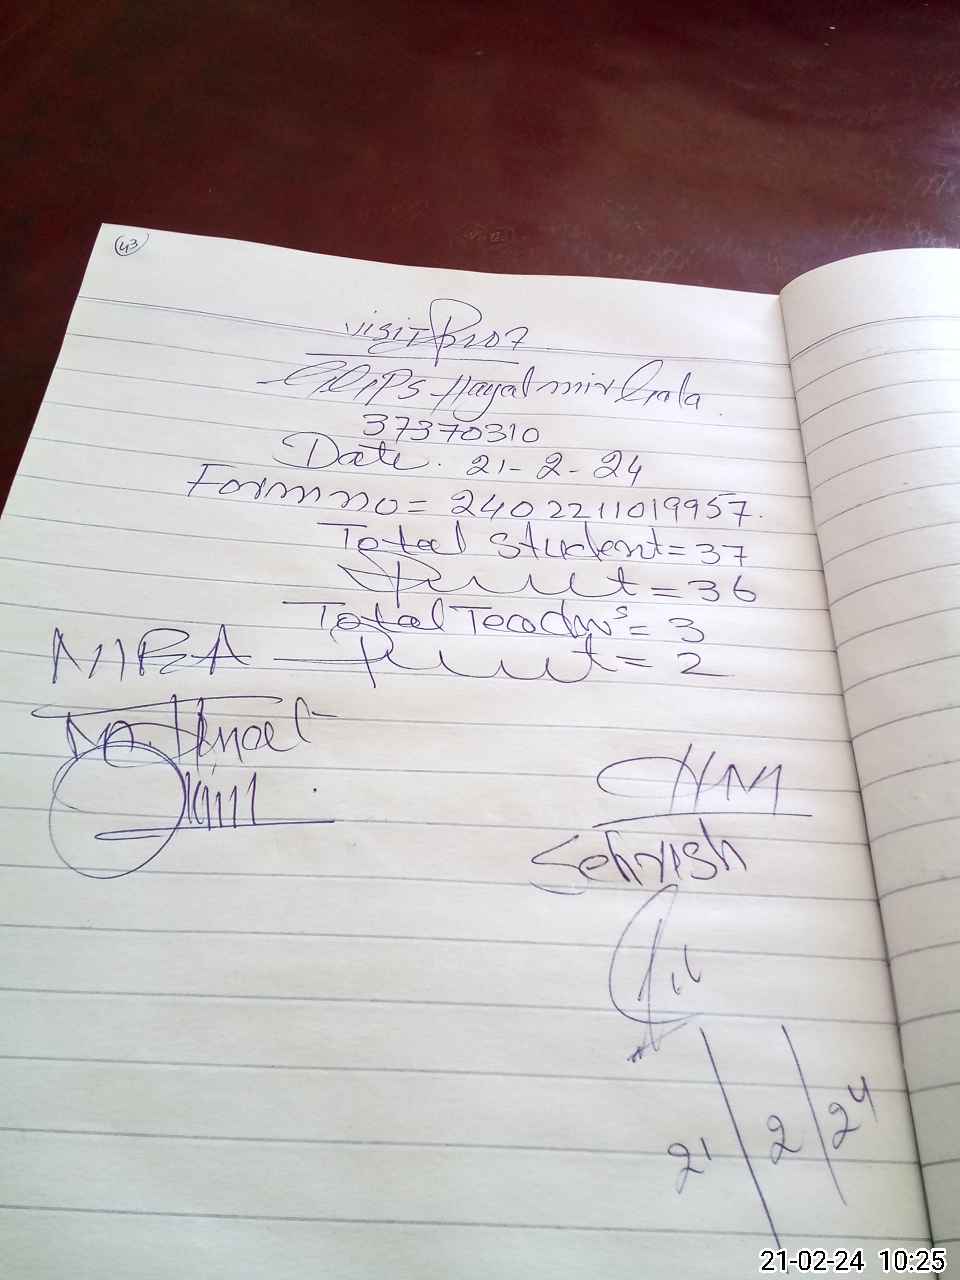 43
visit Proz
GGPS Hayal mir Gala
37370310
Date. 21-2-24
Form no = 2402211019957.
Total Student = 37
Present = 36
Total Teachers = 3
Present = 2
HM
Sehrish
21 2 24
21-02-24 10:25